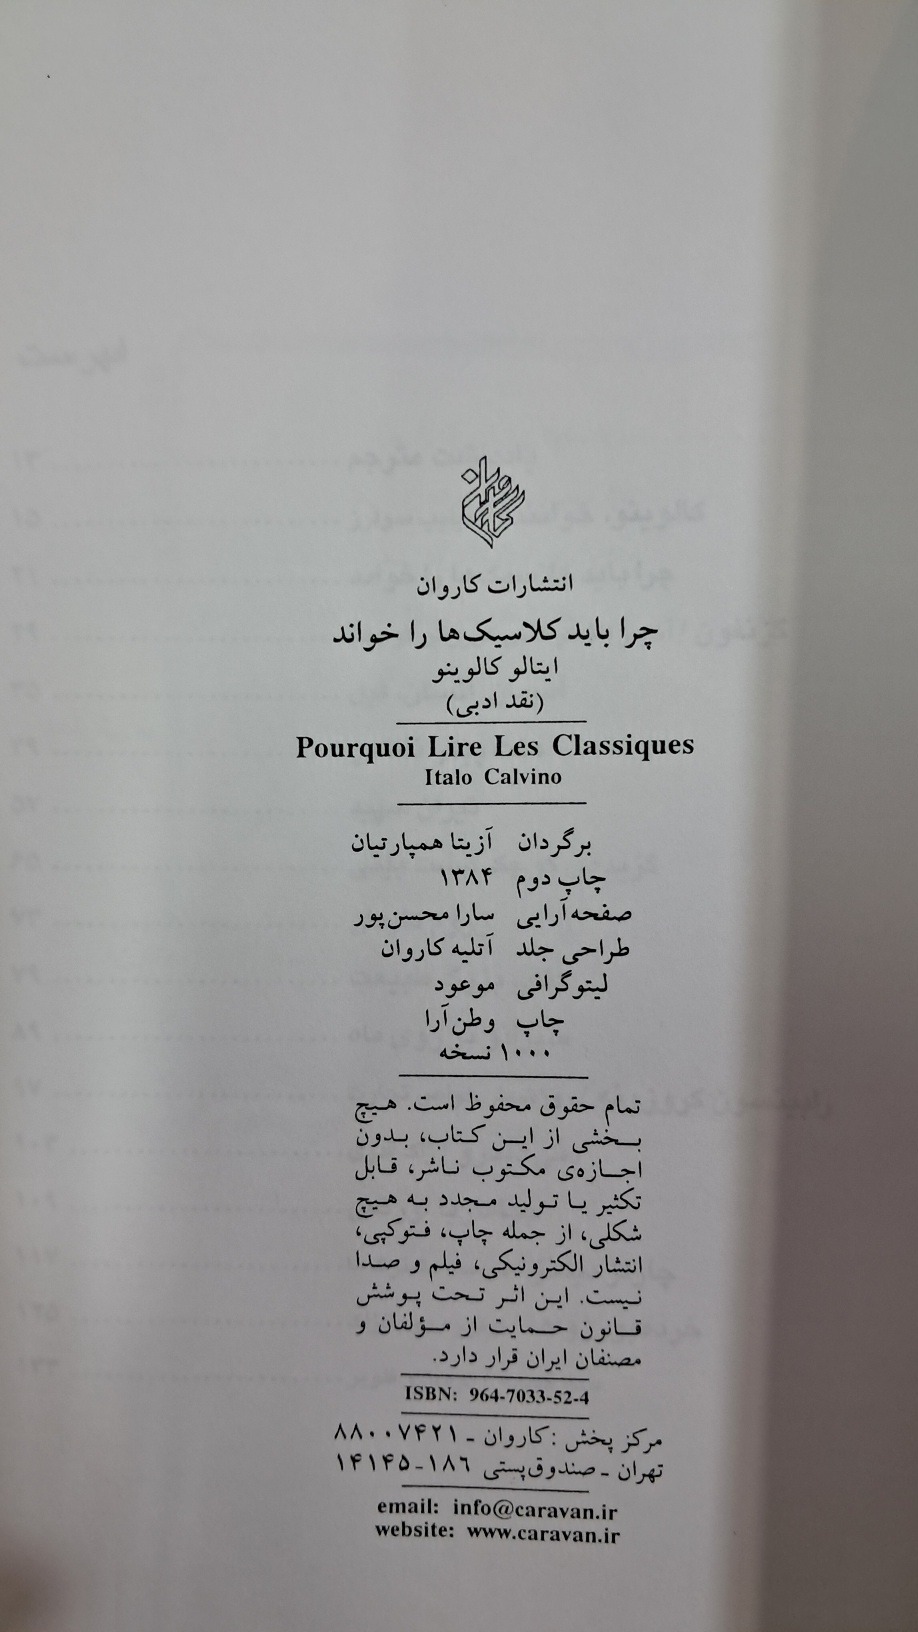 انتشارات کاروان
چرا باید کلاسیک‌ها را خواند
ایتالو کالوینو
(نقد ادبی)
Pourquoi Lire Les Classiques
Italo Calvino
برگردان آزیتا همپارتیان
چاپ دوم ۱۳۸۴
صفحه‌آرایی سارا محسن‌پور
طراحی جلد آتلیه کاروان
لیتوگرافی موعود
چاپ وطن‌آرا
۱۰۰۰ نسخه
تمام حقوق محفوظ است. هیچ
بخشی از این کتاب، بدون
اجازه‌ی مکتوب ناشر، قابل
تکثیر یا تولید مجدد به هیچ
شکلی، از جمله چاپ، فتوکپی،
انتشار الکترونیکی، فیلم و صدا
نیست. این اثر تحت پوشش
قانون حمایت از مؤلفان و
مصنفان ایران قرار دارد.
ISBN: 964-7033-52-4
مرکز پخش : کاروان - ۸۸۰۰۷۴۲۱
تهران - صندوق‌پستی ۱۸۶-۱۴۱۴۵
email: info@caravan.ir
website: www.caravan.ir